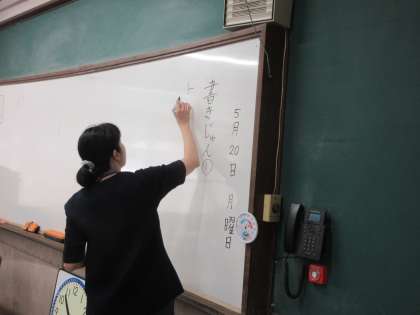 5月20日 月曜日
書きじゅん①